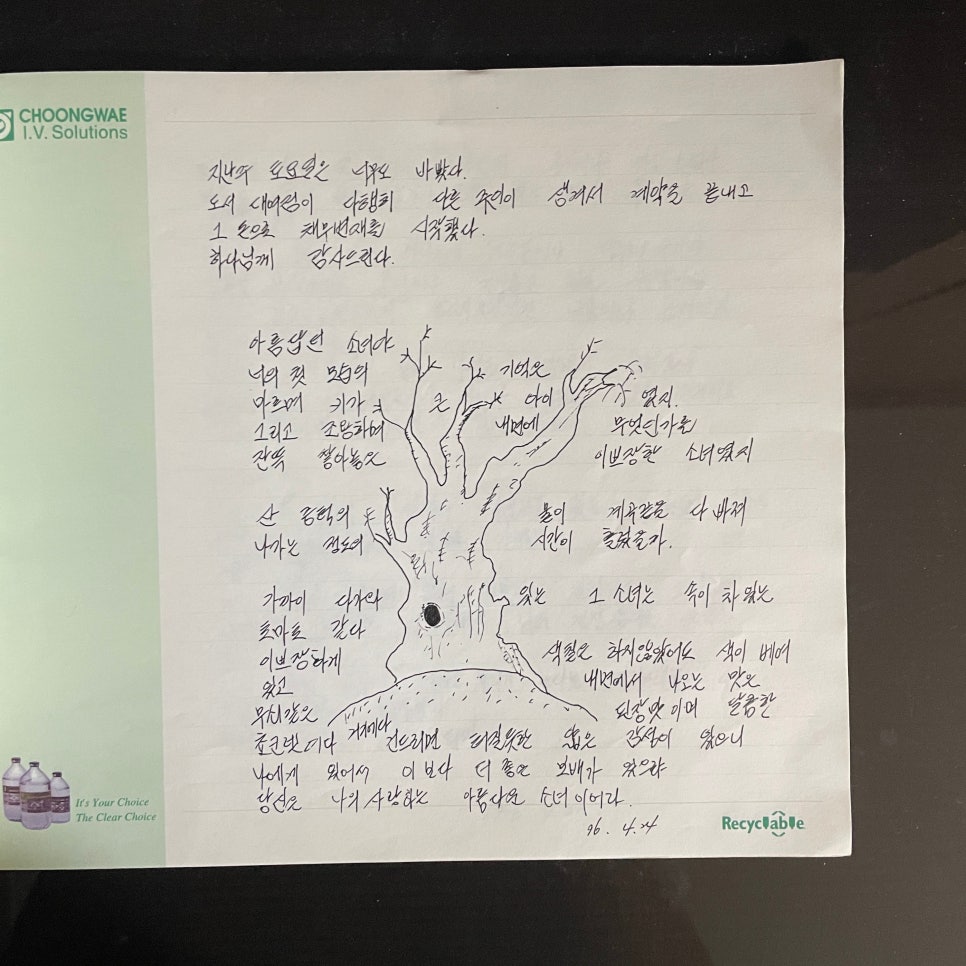 CHOONGWAE
I.V. Solutions
지난주 토요일은 너무도 바빴다.
도서 대여점이 다행히 다른 주인이 생겨서 계약을 끝내고
그 돈으로 채무변제를 시작했다.
하나님께 감사드린다.
아름다운 소녀야
너의 첫 모습의 기억은
마르며 키가 큰 아이 였지.
그리고 조용하며 내면에 무엇인가를
잔뜩 쌓아놓은 이쁘장한 소녀였지
산 중턱의 물이 계곡같을 다 빠져
나가는 정도의 시간이 흘렀을까.
가까이 다가와 있는 그 소녀는 속이 차 있는
토마토 같다
이쁘장하게 색칠은 하지않았어도 색이 베여
있고 내면에서 나오는 맛은
무시같은 된장맛 이며 달콤한
쵸코렛 이다 거기에다 건드리면 터질듯한 감성이 있으니
나에게 있어서 이 보다 더 좋은 보배가 있으랴
당신은 나의 사랑하는 아름다운 소녀 이어라.
96. 4. 24
It's Your Choice
The Clear Choice
Recyclable